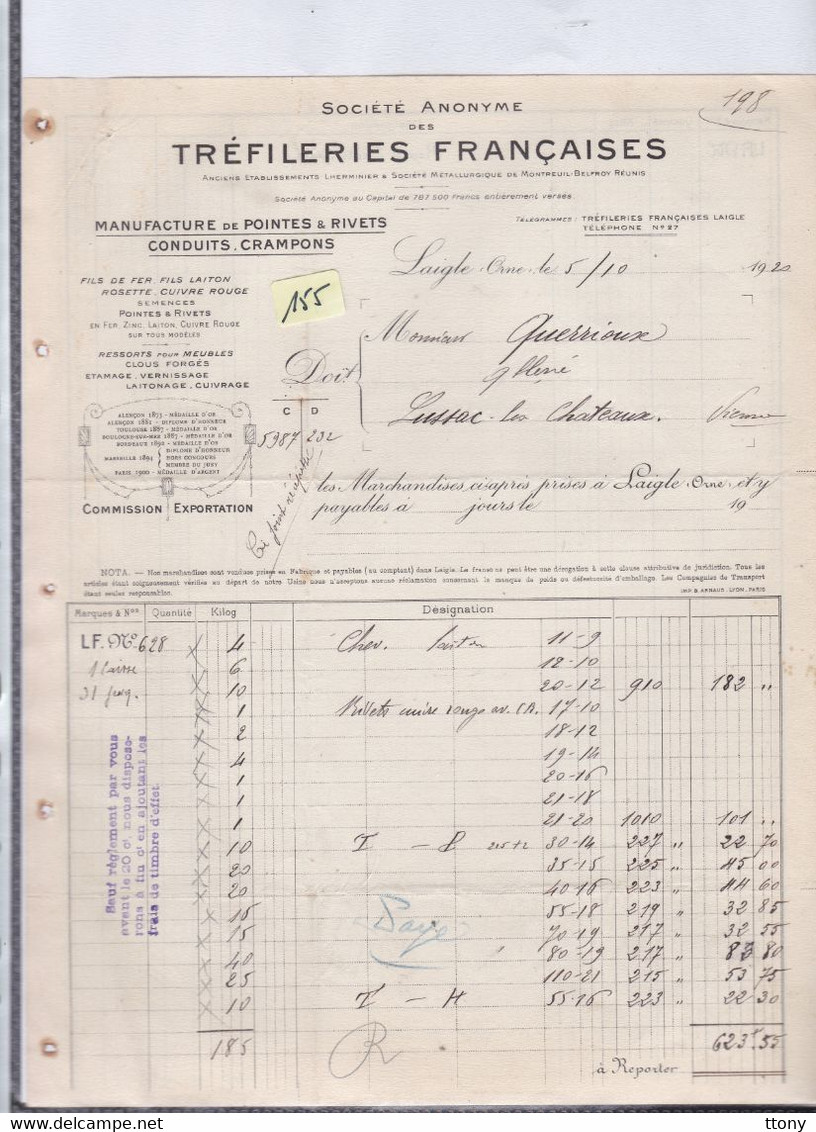 198
SOCIÉTÉ ANONYME
DES
TRÉFILERIES FRANÇAISES
ANCIENS ETABLISSEMENTS LHERMINIER & SOCIÉTÉ MÉTALLURGIQUE DE MONTREUIL-BELFROY RÉUNIS
Société Anonyme au Capital de 787.500 Francs entièrement versés
MANUFACTURE DE POINTES & RIVETS
CONDUITS. CRAMPONS
TÉLÉGRAMMES : TRÉFILERIES FRANÇAISES LAIGLE
TÉLÉPHONE Nº 27
Laigle (Orne) le 5/10 1920
FILS DE FER, FILS LAITON
ROSETTE, CUIVRE ROUGE
SEMENCES
POINTES & RIVETS
EN FER, ZINC, LAITON, CUIVRE ROUGE
SUR TOUS MODÈLES
RESSORTS POUR MEUBLES
CLOUS FORGÉS
ETAMAGE, VERNISSAGE
LAITONAGE, CUIVRAGE
155
Monsieur Querrioux
Doit
Lussac-les Chateaux. Vienne
ALENÇON 1873 - MÉDAILLE D'OR
ALENÇON 1882 - DIPLOME D'HONNEUR
TOULOUSE 1887 - MÉDAILLE D'OR
BOULOGNE-SUR-MER 1887 - MÉDAILLE D'OR
BORDEAUX 1892 - MÉDAILLE D'OR
MARSEILLE 1894 DIPLOME D'HONNEUR
HORS CONCOURS
MEMBRE DU JURY
PARIS 1900 - MÉDAILLE D'ARGENT
COMMISSION EXPORTATION
C D
5987 232
Ci joint
les Marchandises ci-après prises à Laigle (Orne) et y
payables à jours le 19
NOTA. — Nos marchandises sont vendues prises en Fabrique et payables (au comptant) dans Laigle. Le franco ne peut être une dérogation à cette clause attributive de juridiction. Tous les
articles étant soigneusement vérifiés au départ de notre Usine nous n'acceptons aucune réclamation concernant le manque de poids ou défectuosité d'emballage. Les Compagnies de Transport
étant seules responsables.
IMP. B. ARNAUD. LYON. PARIS
Marques & Nos Quantité Kilog Désignation
LF. No 628 4 Chev. laiton 11-9
1 caisse 6 12-10
31 10 20-12 910 182 "
1 Rivets cuivre rouge 17-10
2 18-12
4 19-14
1 20-16
1 21-18
1 21-20 1010 101 "
10 30-14 227 " 22 70
20 35-15 225 " 45 00
20 40-16 223 " 44 60
15 55-18 219 " 32 85
15 70-19 217 " 32 55
40 80-19 217 " 80
25 110-21 215 " 53 75
10 T - H 55-16 223 " 22 30
185 623 55
Sauf règlement par vous
avant le 20 ct. nous dispose-
rons à fin ct en ajoutant les
frais de timbre d'effet
Payé
R
à Reporter
ttony